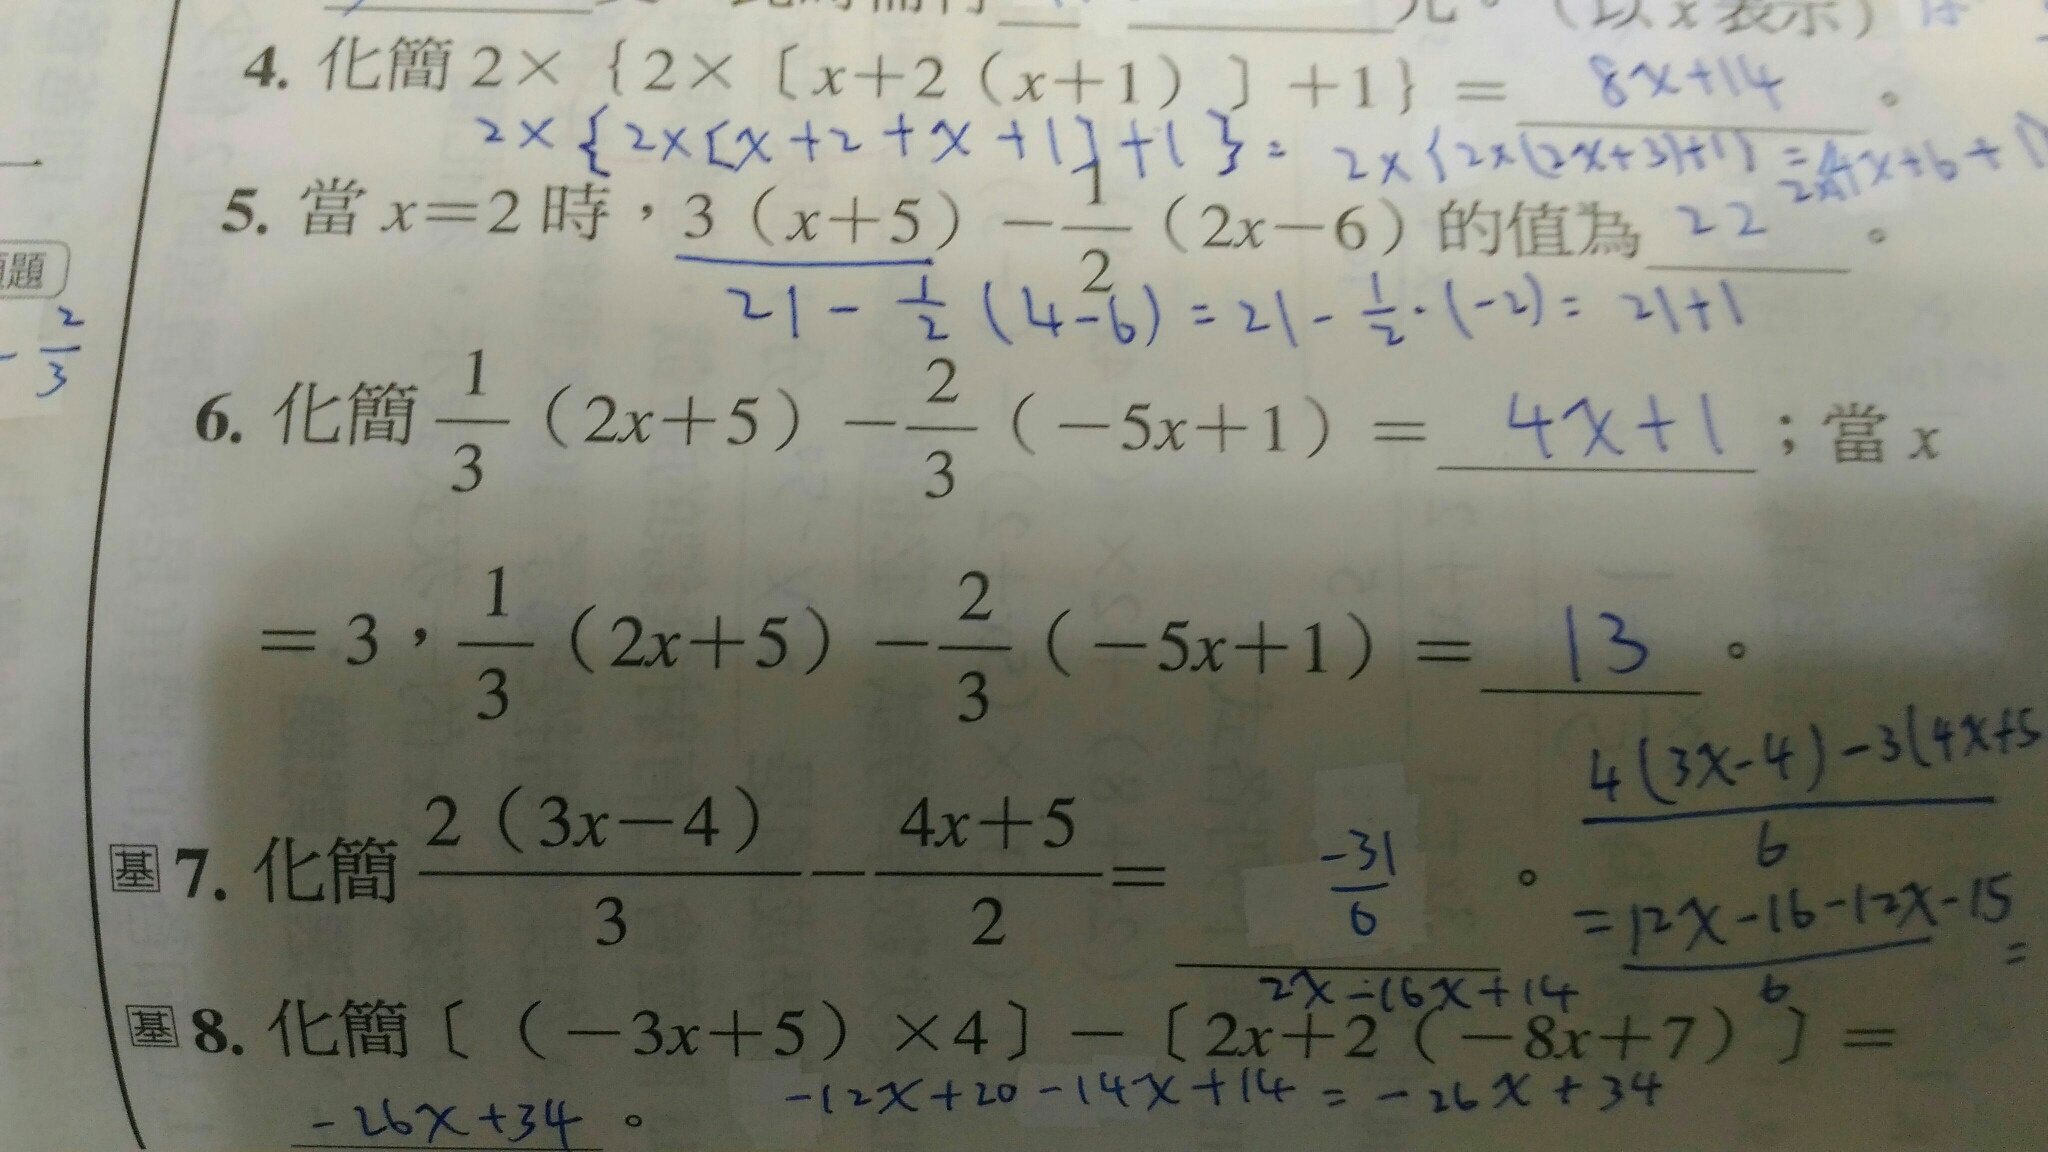 元。(以 x 表示)
4. 化簡 2×{2×〔x+2(x+1)〕+1}= 8x+14 。
2×{2×[x+2+x+1]+1}= 2×{2×(2x+3)+1}
5. 當 x=2 時，3(x+5)-1/2(2x-6)的值為 22 。
21-1/2(4-6)=21-1/2·(-2)=21+1
題
-2/3
6. 化簡 1/3(2x+5)-2/3(-5x+1)= 4x+1 ；當 x
=3，1/3(2x+5)-2/3(-5x+1)= 13 。
4(3x-4)-3(4x+5
6
基 7. 化簡 2(3x-4)/3-4x+5/2= -31/6 。
=12x-16-12x-15/6 =
2x-16x+14
基 8. 化簡〔(-3x+5)×4〕-〔2x+2(-8x+7)〕=
-12x+20-14x+14=-26x+34
-26x+34 。